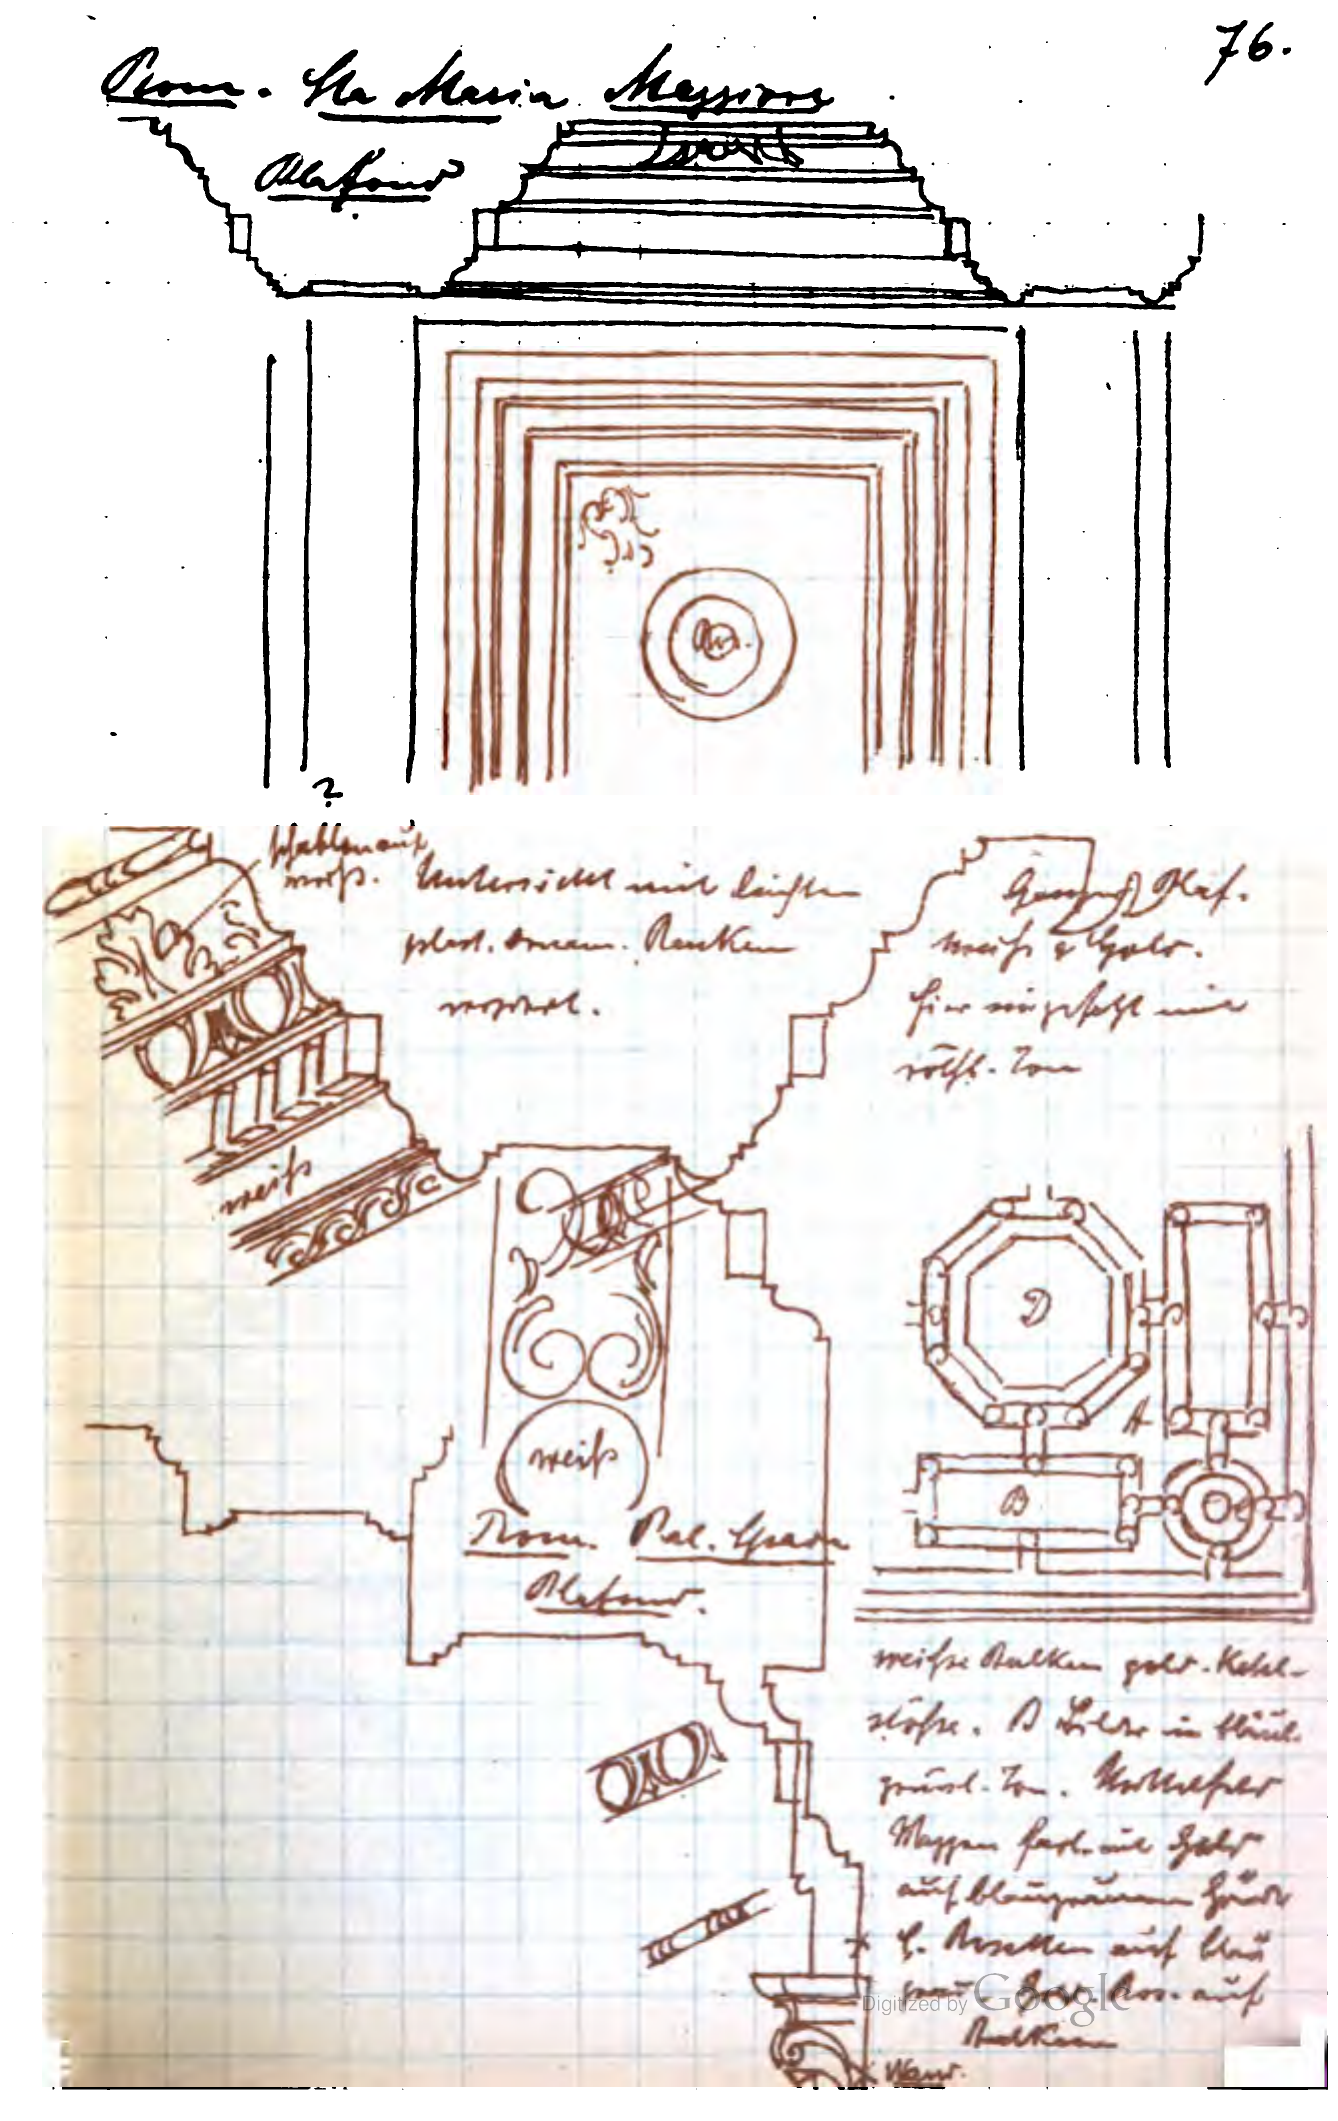 76.
Rom. Sta Maria Maggiore
Plafond
Ros.
?
weiß.
Untersicht mit leichten
plast. Ornam. Ranken
verziert.
Plaf.
weiß & Gold.
hier eingesetzt mit
röthl. Ton
weiß
D
A
B
C
weiß
Rom. Pal. Spada
Plafond.
weiße Balken gold. Kehl-
stöße. B Bilder in bläul.
grünl. Ton. Mittelfeld
Wappen farb. mit Gold
auf blaugrünem Grund
C. Rosetten auf blau
Ros. auf
Balken
Wand.
Digitized by Google